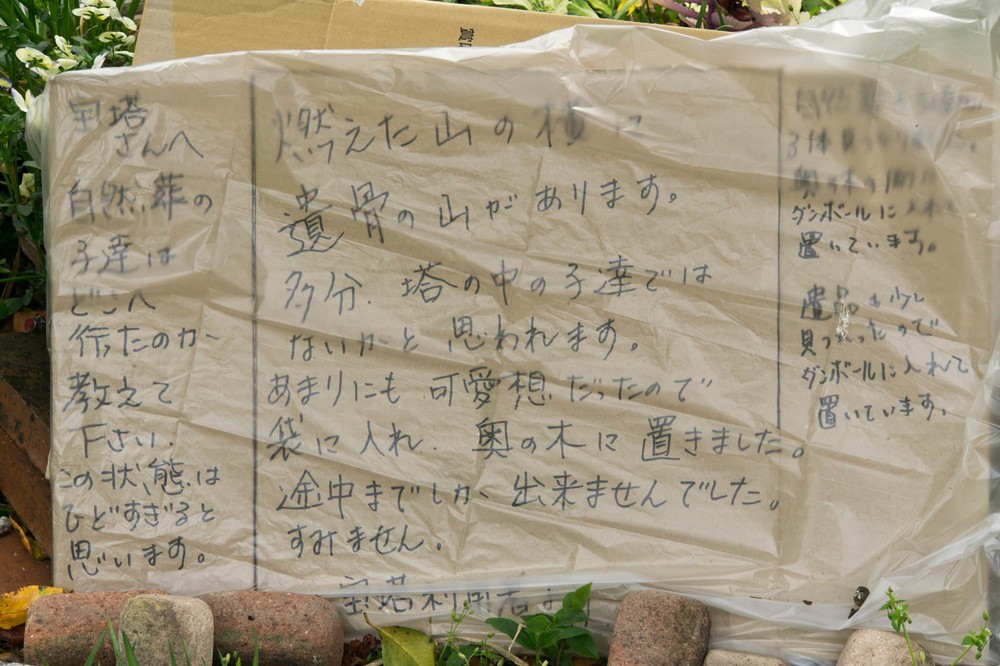 宝塔
さんへ
自然葬の
子達は
どこへ
行たのか
教えて
下さい.
この状態は
ひどすぎると
思います。
燃えた山の横に
遺骨の山があります。
多分.塔の中の子達では
ないかと思われます。
あまりにも可愛想だったので
袋に入れ.奥の木に置きました。
途中までしか出来ませんでした。
すみません。
宝塔利用者より
自然葬の
子体見つかりました。
奥の木の
ダンボールに入れて
置いています。
遺品も少し
見つかったので
ダンボールに入れて
置いています.